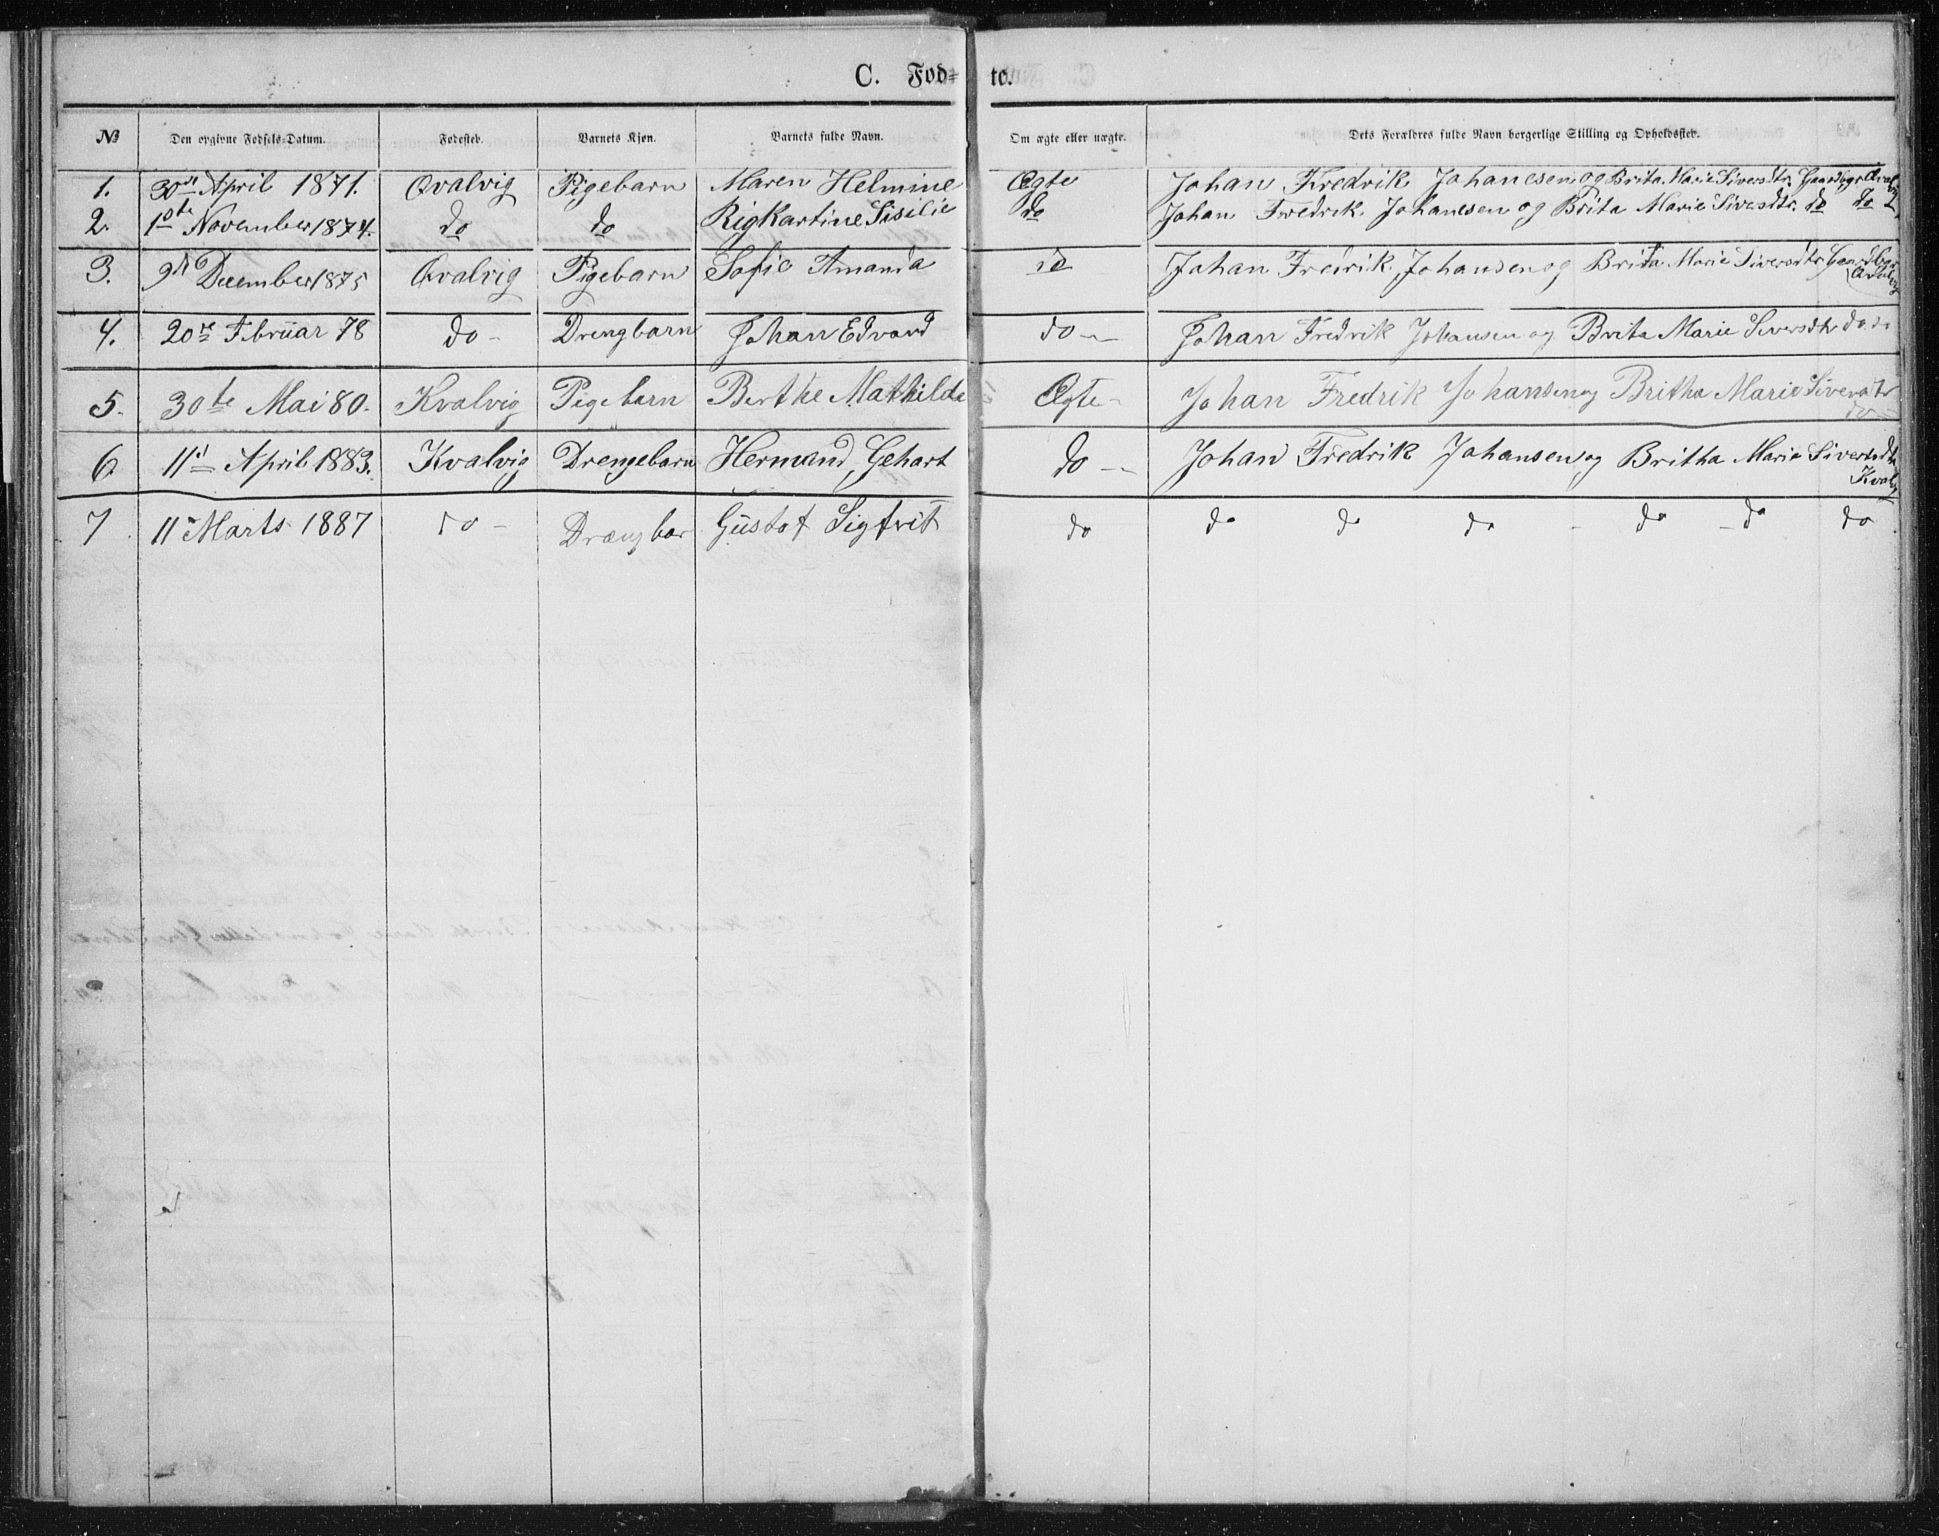 C. Fød= te.
№ Den opgivne Fødsels-Datum. Fødested. Barnets Kjøn. Barnets fulde Navn. Om ægte eller uægte. Dets Forældres fulde Navn borgerlige Stilling og Opholdssted.
1. 30te April 1871. Qvalvig Pigebarn Maren Helmine Ægte Johan Fredrik Johanesen og Brita Marie Siversdtr. Gaardbgr Qvalvig
2. 1ste November 1874. do do Rigkartine Sisilie do Johan Fredrik Johanesen og Brita Marie Sivesdtr. do do
3. 9de December 1875 Qvalvig Pigebarn Sofie Amanda do Johan Fredrik Johansen og Brita Marie Siversdtr Gaardbgr Qvalvig
4. 20de Februar 78 do - Drengbarn Johan Edvard do - Johan Fredrik Johansen og Brita Marie Siversdtr do do
5. 30te Mai 80. Kvalvig Pigebarn Berthe Mathilde Ægte - Johan Fredrik Johansen og Britha Marie Siversdtr do -
6 11te April 1883. Kvalvig Drengebarn Hermand, Gehart do - Johan Fredrik Johansen og Britha Marie Siversdtr Kvalvig
7 11 Marts 1887 do - Drængbar Gustaf Sigfrit do do do do - do - do do